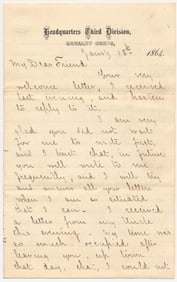 Headquarters Third Division,
CAVALRY CORPS,
Jan'y 1864.
My Dear Friend
Your very
welcome letter, I received
last evening and hasten
to reply to it.
I am very
glad you did not wait
for me to write first,
and I trust that, in future
you will write to me
frequently, and I will try
and answer all your letters
when I am so situated
that I can. I received
a letter from my Uncle
this evening. My time was
so much occupied after
leaving you, up town
that day, that, I could not